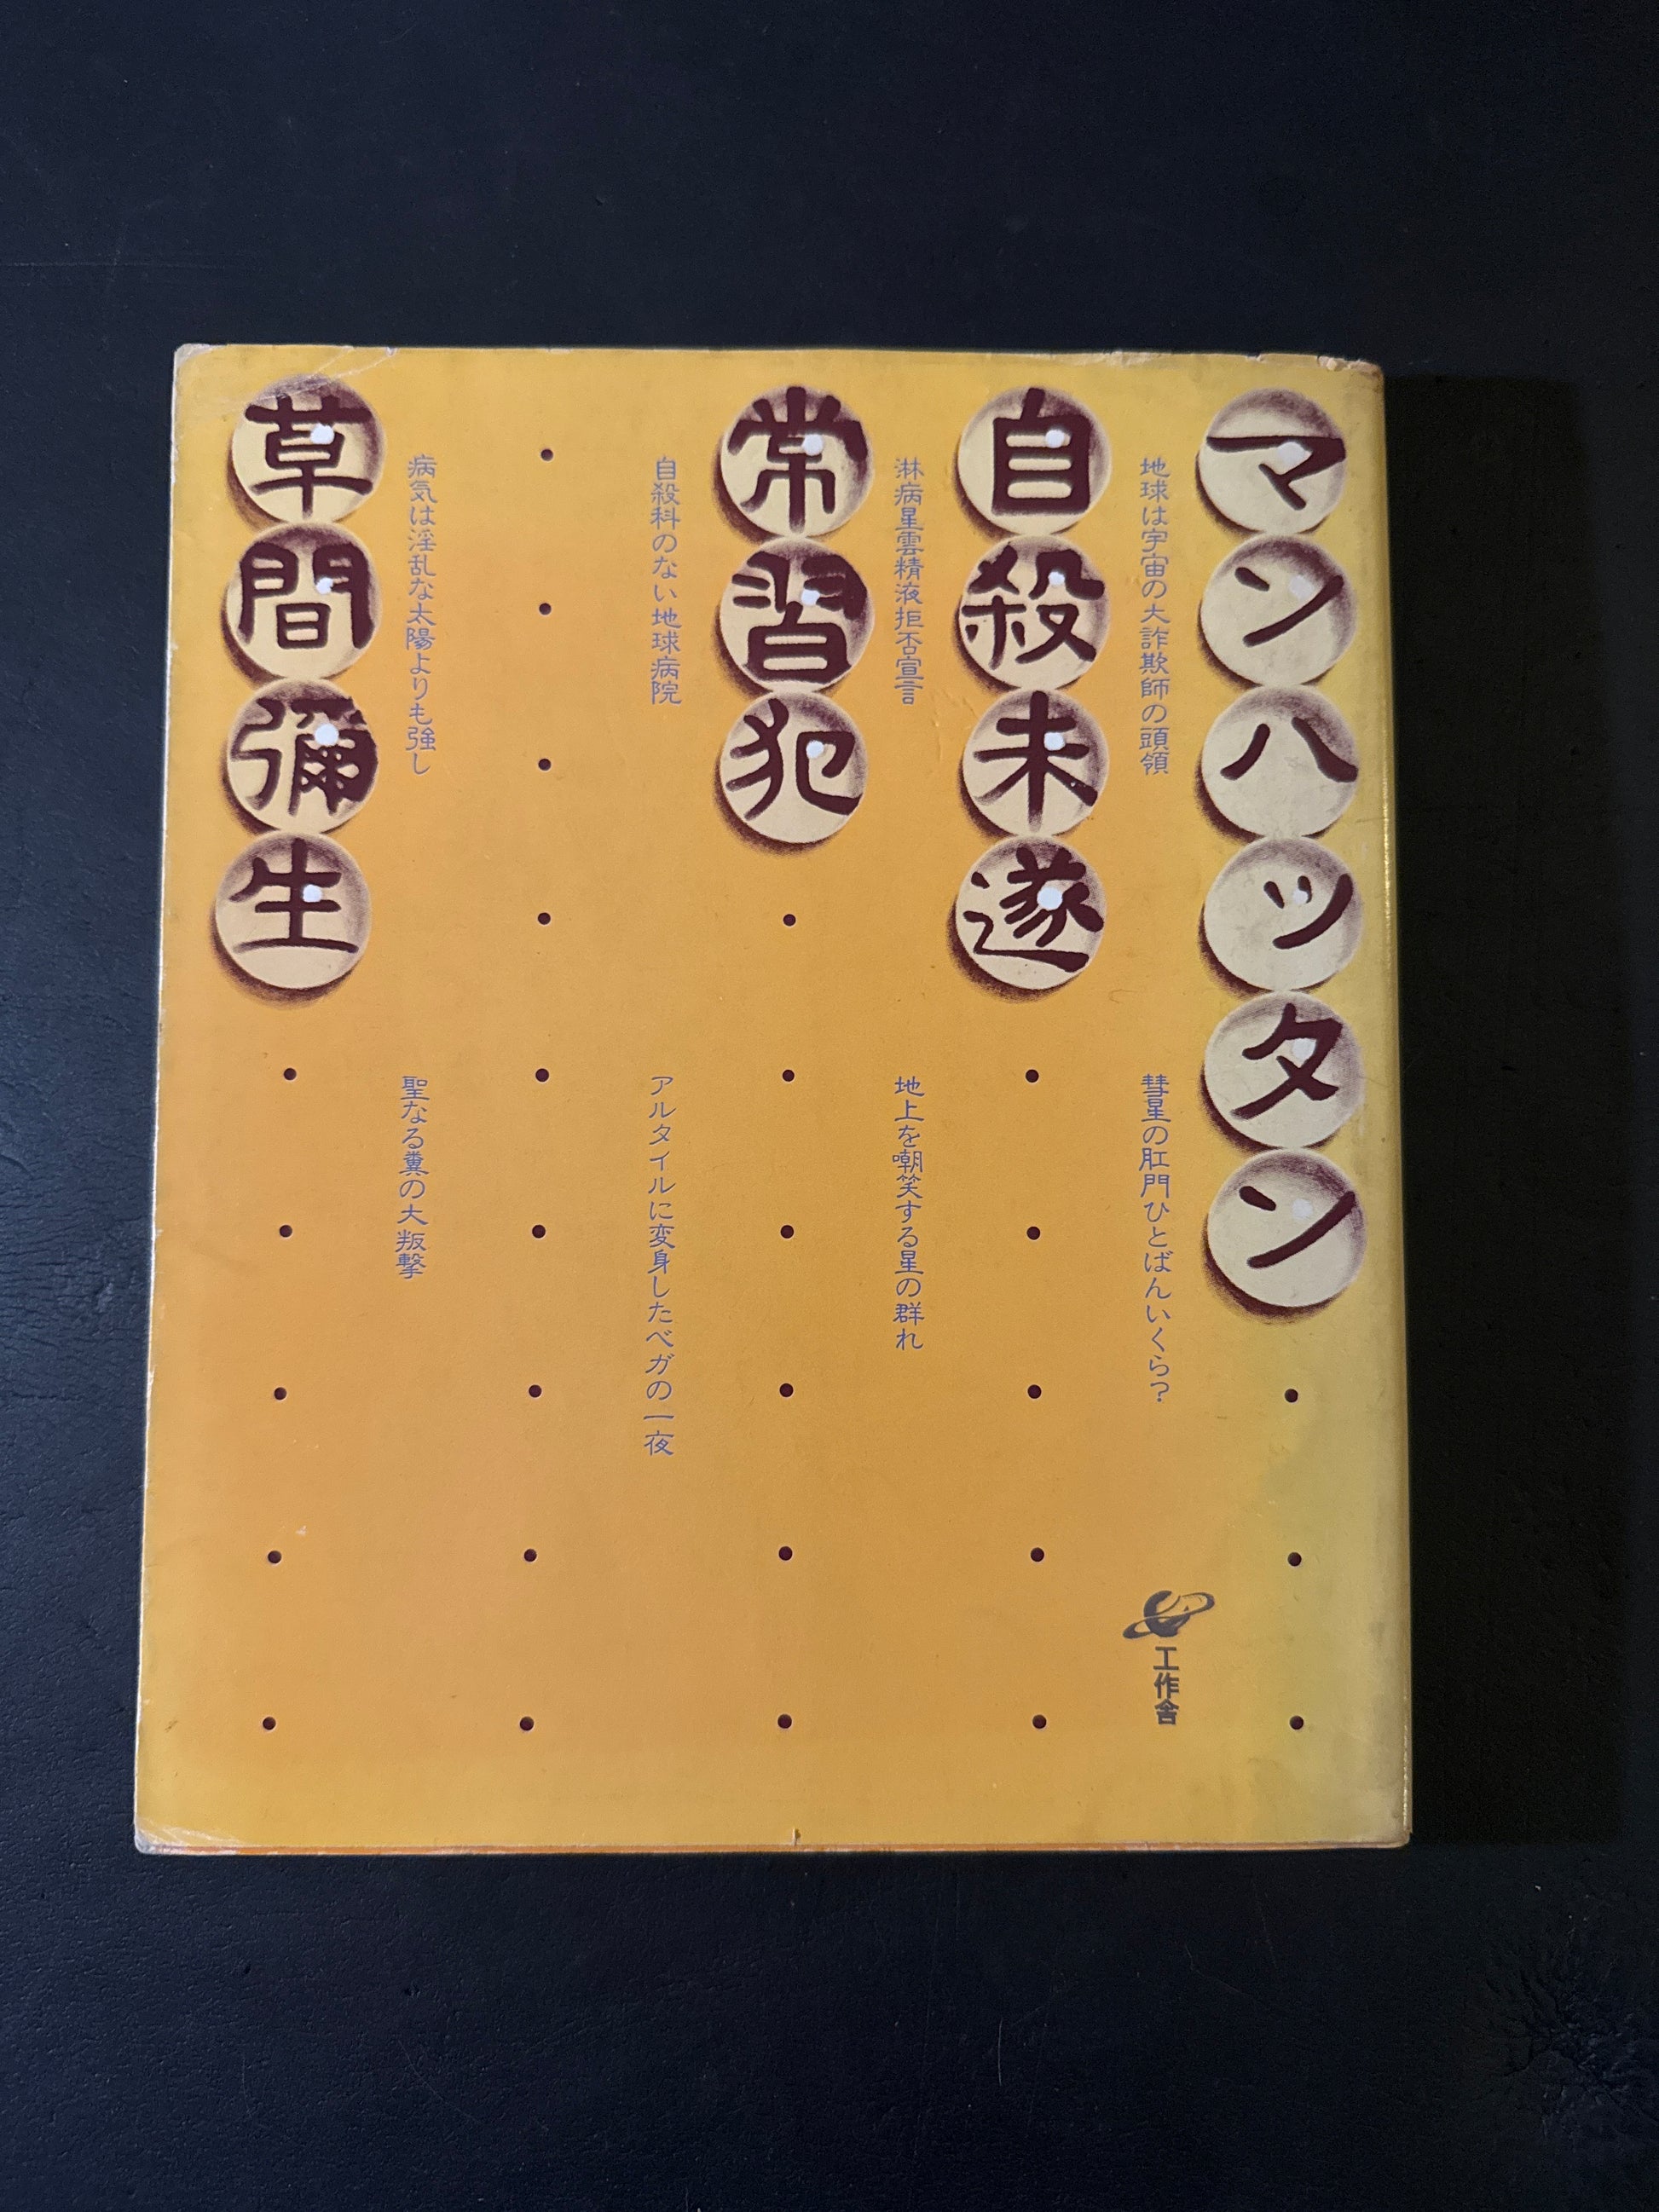 マンハッタン
地球は宇宙の大詐欺師の頭領
彗星の肛門ひとばんいくら？
自殺未遂
淋病星雲精液拒否宣言
地上を嘲笑する星の群れ
常習犯
自殺科のない地球病院
アルタイルに変身したベガの一夜
病気は淫乱な太陽よりも強し
聖なる糞の大叛撃
草間彌生
工作舎